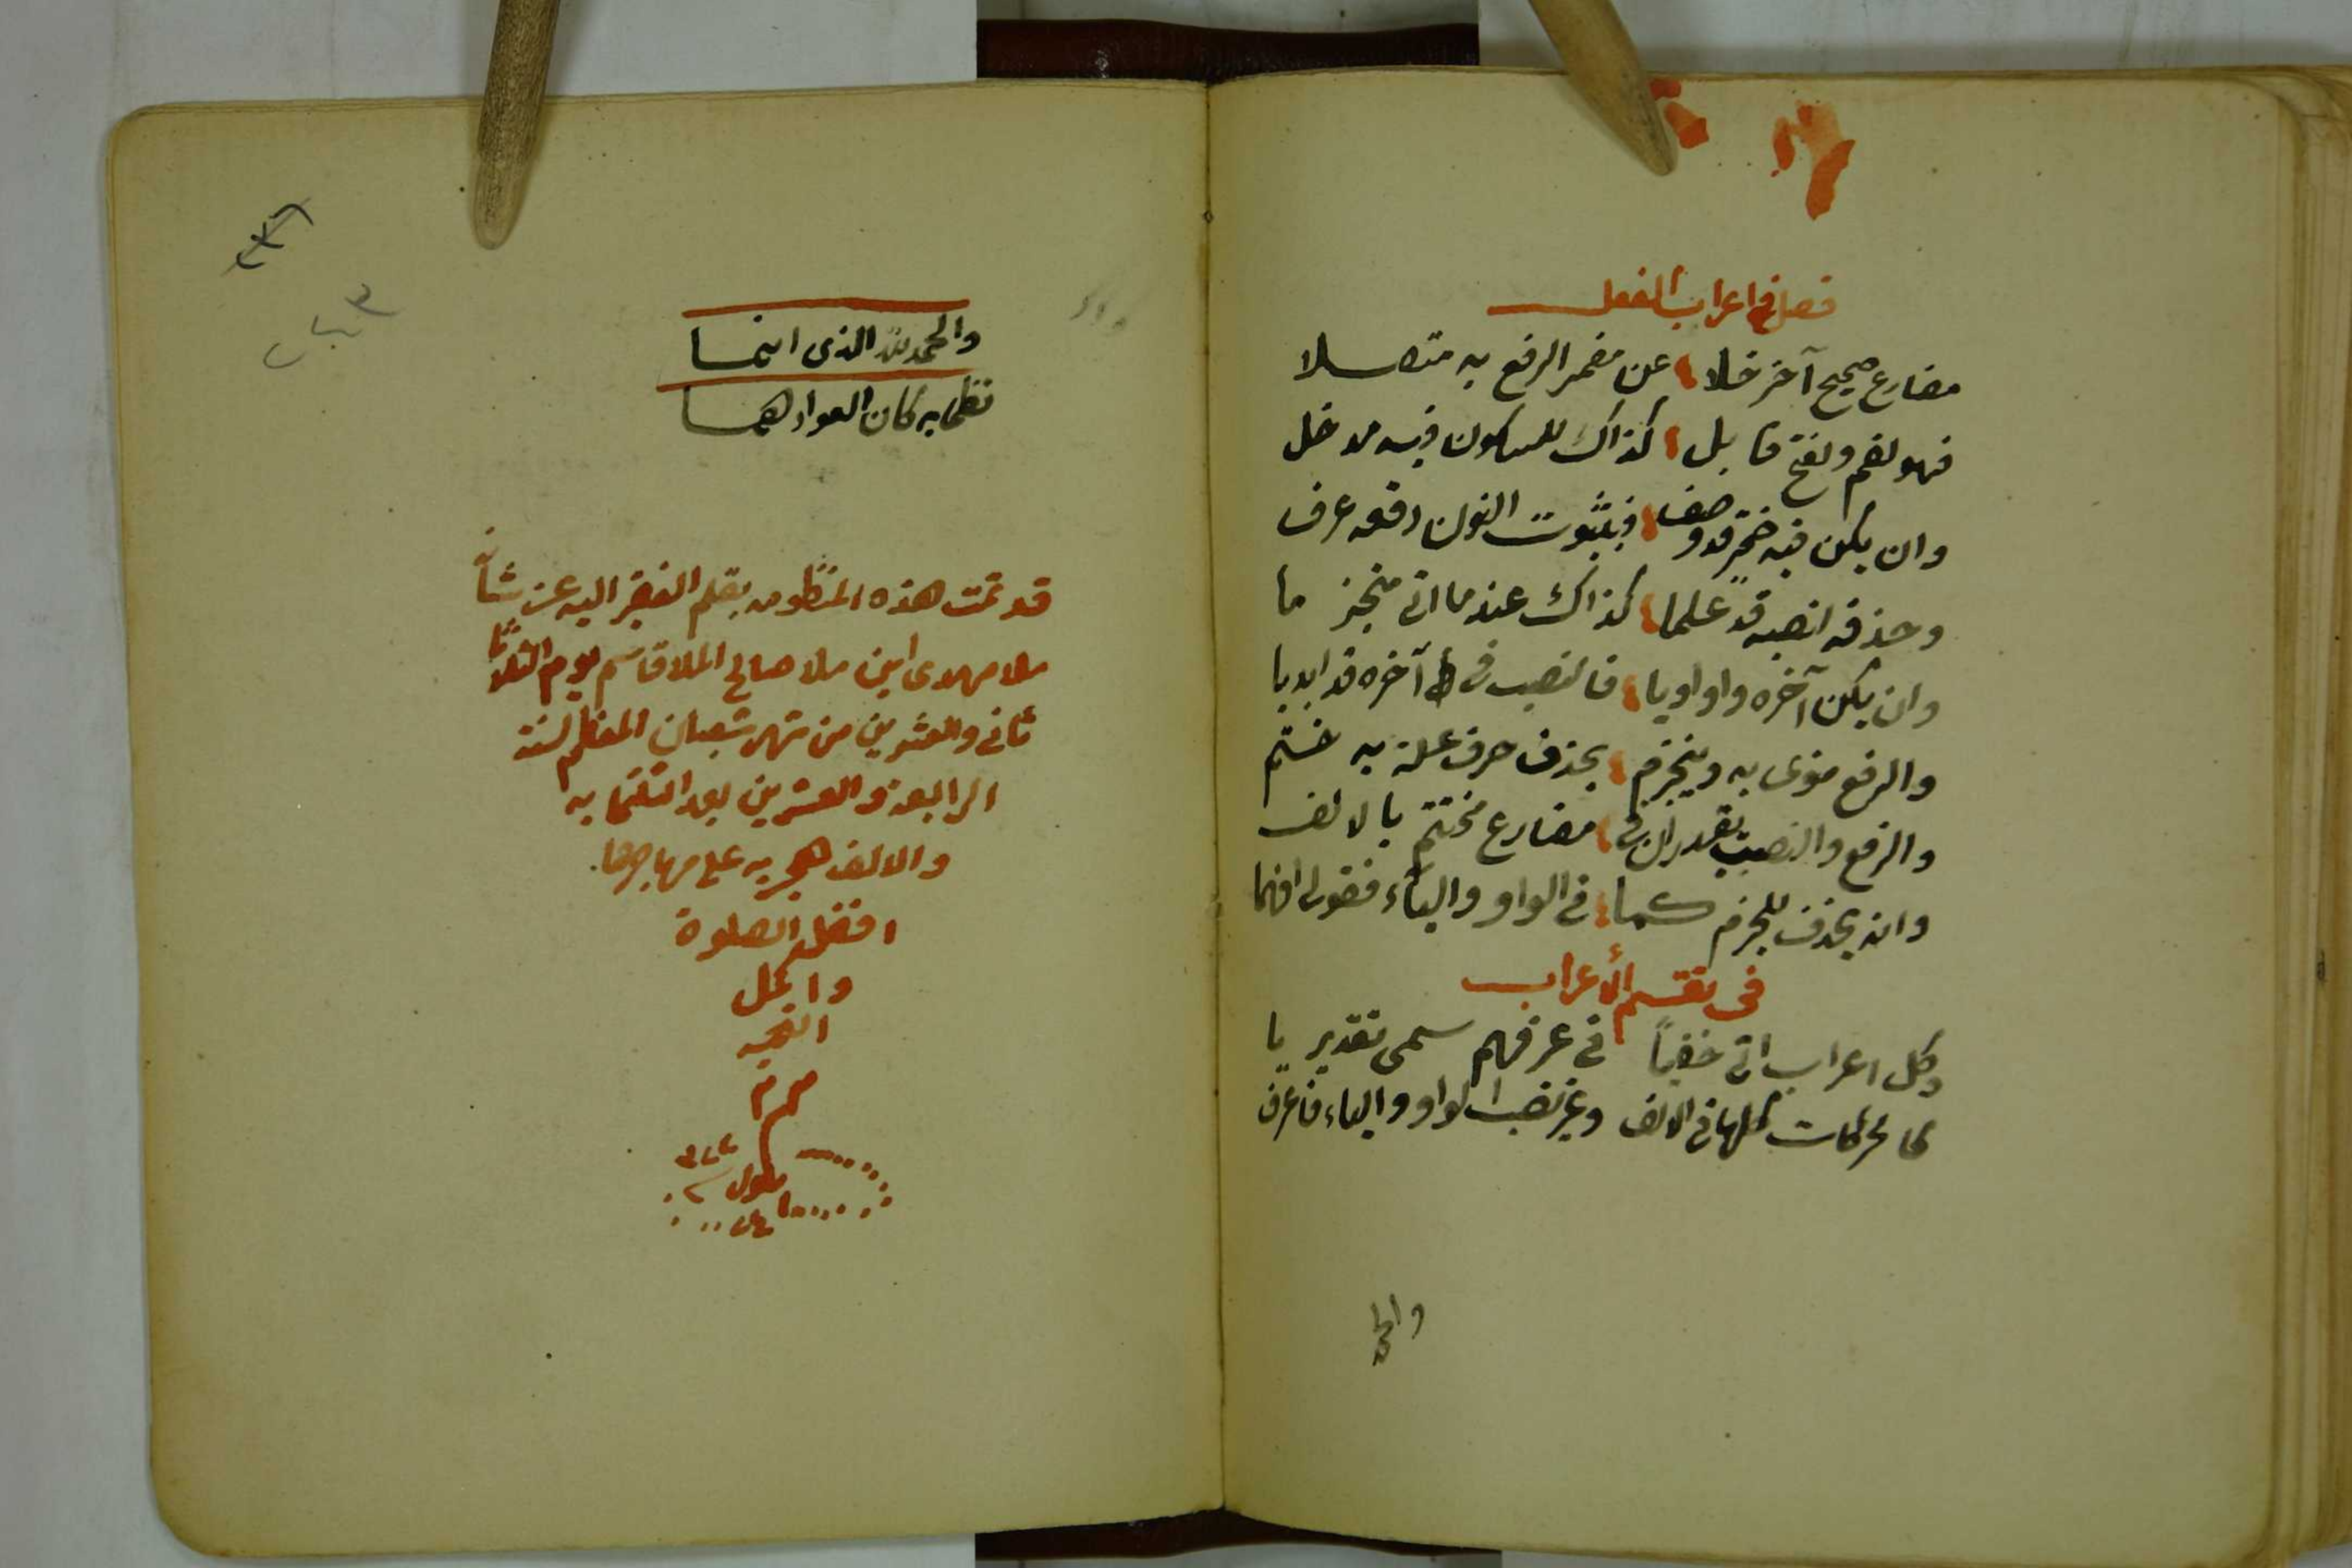 فصل في اعراب الفعل
مضارع صحيح آخر خلا عن مضمر الرفع به متصلا
فهو لضم ولفتح قابل كذاك للسكون فيه مدخل
وان يكن فيه ضمير قد وصف فبثبوت النون رفعه عرف
وحذفه انصبه قد علما كذاك عند ما اتى منجزما
وان يكن آخره واوا ويا فالنصب في آخره قد ابديا
والرفع منوى به وينجزم بحذف حرف علة به ختم
والرفع والنصب يقدران في مضارع مختتم بالالف
وانه يحذف للجزم كما في الواو والياء فقولى افهما
في تقسيم الأعراب
وكل اعراب اتى خفياً في عرفهم سمى تقديريا
كالحركات كلها في الالف وغير نصب الواو والياء فاعرف
والحمد
والحمد لله الذى اتمما
نظما به كان الفواد هما
قد تمت هذه المنظومه بقلم الفقير اليه عز شأنه
ملا مهدى ابن ملا صالح الملا قاسم يوم الثلاثا
ثانى والعشرين من شهر شعبان المعظم لسنة
الرابعة والعشرين بعد الثلثمايه
والالف هجريه على مهاجرها
افضل الصلوة
واكمل
التحيه
م م م
٢٤٣